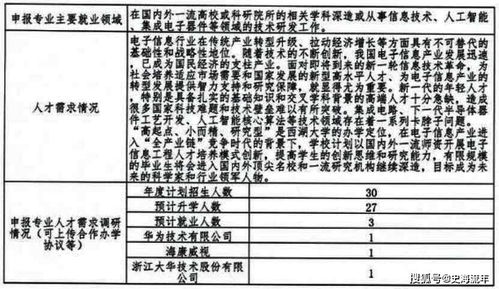 申报专业主要就业领域
在国内外一流高校或科研院所的相关学科深造或从事信息技术、人工智能
、集成电子器件等领域的技术研发工作。
人才需求情况
电子信息行业在传统产业转型升级、拉动经济增长等方面具有不可替代的
基础性和战略性地位。随着技术的不断创新,我国新电子信息产业发展迅速
,已成为国民经济的支柱产业。面对即将到来的新一轮信息技术革命,为
社会培养适应市场需要和国家发展的新型高水平人才、为电子信息产业的
转型发展提供智力支持和研究保障,就显得尤为重要。新一代的年轻人才
,特别是具备扎实的基础知识和交叉学科背景的高端人才十分急缺,造成
很多国家科技难题和行业技术壁垒难以有效攻克、突破,当代半导体器
件工艺开发、人工智能核心算法等技术领域存在着一系列卡脖子问题。
"高起点、小而精、研究型"是西湖大学的办学定位,在电子信息产业进
入"全产业链"竞争时代的背景下,学校计划以国内外一流师资开展电子
信息工程人才培养模式创新,提高学生的创新思维和研究能力,有限规模
的毕业生将会进入国内外顶尖名校和一流研究机构继续深造,目标成为未
来的科学家和行业领军人物。
申报专业人才需求调研
情况(可上传合作办学
协议等)
年度计划招生人数 30
预计升学人数 27
预计就业人数 3
华为技术有限公司 1
海康威视 1
浙江大华技术股份有限
公司 1
搜狐号@史海流年